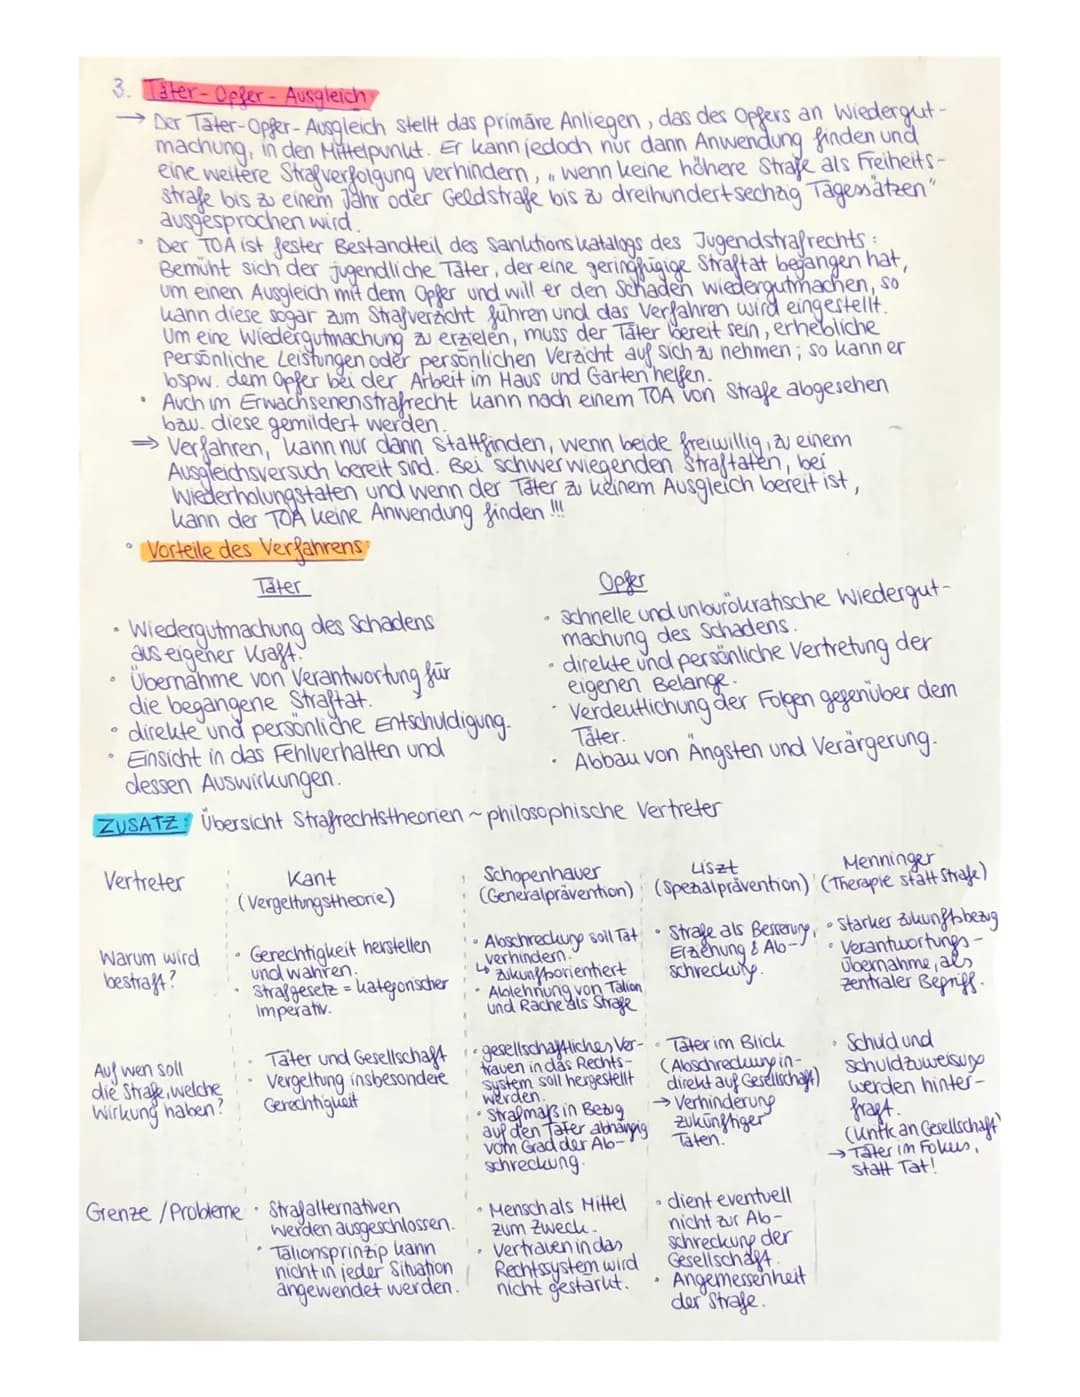 3. Täter-Opfer-Ausgleich
→ Der Täter-Opfer-Ausgleich stellt das primäre Anliegen, das des Opfers an Wiedergut-
machung, in den Mittelpunkt. Er kann jedoch nur dann Anwendung finden und
eine weitere Strafverfolgung verhindern, „wenn keine höhere Strafe als Freiheits-
strafe bis zu einem Jahr oder Geldstrafe bis zu dreihundertsechzig Tagessätzen"
ausgesprochen wird.
• Der TOA ist fester Bestandteil des Sanktionskatalogs des Jugendstrafrechts:
Bemüht sich der jugendliche Täter, der eine geringfügige Straftat begangen hat,
um einen Ausgleich mit dem Opfer und will er den Schaden wiedergutmachen, so
kann diese sogar zum Strafverzicht führen und das Verfahren wird eingestellt.
Um eine Wiedergutmachung zu erzielen, muss der Täter bereit sein, erhebliche
persönliche Leistungen oder persönlichen Verzicht auf sich zu nehmen; so kann er
bspw. dem Opfer bei der Arbeit im Haus und Garten helfen.
• Auch im Erwachsenenstrafrecht kann nach einem TOA von Strafe abgesehen
bzw. diese gemildert werden.
⇒ Verfahren, kann nur dann stattfinden, wenn beide freiwillig, zu einem
Ausgleichsversuch bereit sind. Bei schwerwiegenden Straftaten, bei
Wiederholungstaten und wenn der Täter zu keinem Ausgleich bereit ist,
kann der TOA keine Anwendung finden!!!
• Vorteile des Verfahrens
Täter
• Wiedergutmachung des Schadens
aus eigener Kraft.
• Übernahme von Verantwortung für
die begangene Straftat.
• direkte und persönliche Entschuldigung.
• Einsicht in das Fehlverhalten und
dessen Auswirkungen.
Opfer
• schnelle und unbürokratische Wiedergut-
machung des Schadens.
• direkte und persönliche Vertretung der
eigenen Belange.
• Verdeutlichung der Folgen gegenüber dem
Täter.
• Abbau von Ängsten und Verärgerung.
ZUSATZ: Übersicht Strafrechtstheorien ~ philosophische Vertreter
Vertreter
Kant
(Vergeltungstheorie)
Schopenhauer
(Generalprävention)
Liszt
(Spezialprävention)
Menninger
(Therapie statt Strafe)
Warum wird
bestraft?
• Gerechtigkeit herstellen
und wahren.
• Strafgesetz = kategorischer
Imperativ.
• Abschreckung soll Tat
verhindern.
↳ zukunftsorientiert
• Ablehnung von Talion
und Rache als Strafe
• Strafe als Besserung,
Erziehung & Ab-
schreckung.
• Starker Zukunftsbezug
• Verantwortungs-
übernahme, als
zentraler Begriff.
Auf wen soll
die Strafe, welche
Wirkung haben?
• Täter und Gesellschaft
• Vergeltung insbesondere
Gerechtigkeit
• gesellschaftliches Ver-
trauen in das Rechts-
system soll hergestellt
werden.
• Strafmaß in Bezug
auf den Täter abhängig
vom Grad der Ab-
schreckung.
• Täter im Blick
(Abschreckung in-
direkt auf Gesellschaft)
→ Verhinderung
zukünftiger
Taten.
• Schuld und
Schuldzuweisung
werden hinter-
fragt.
(Kritik an Gesellschaft)
→ Täter im Fokus,
statt Tat!
Grenze / Probleme
• Strafalternativen
werden ausgeschlossen.
• Talionsprinzip kann
nicht in jeder Situation
angewendet werden.
• Mensch als Mittel
zum Zweck.
• Vertrauen in das
Rechtssystem wird
nicht gestärkt.
• dient eventuell
nicht zur Ab-
schreckung der
Gesellschaft.
• Angemessenheit
der Strafe.